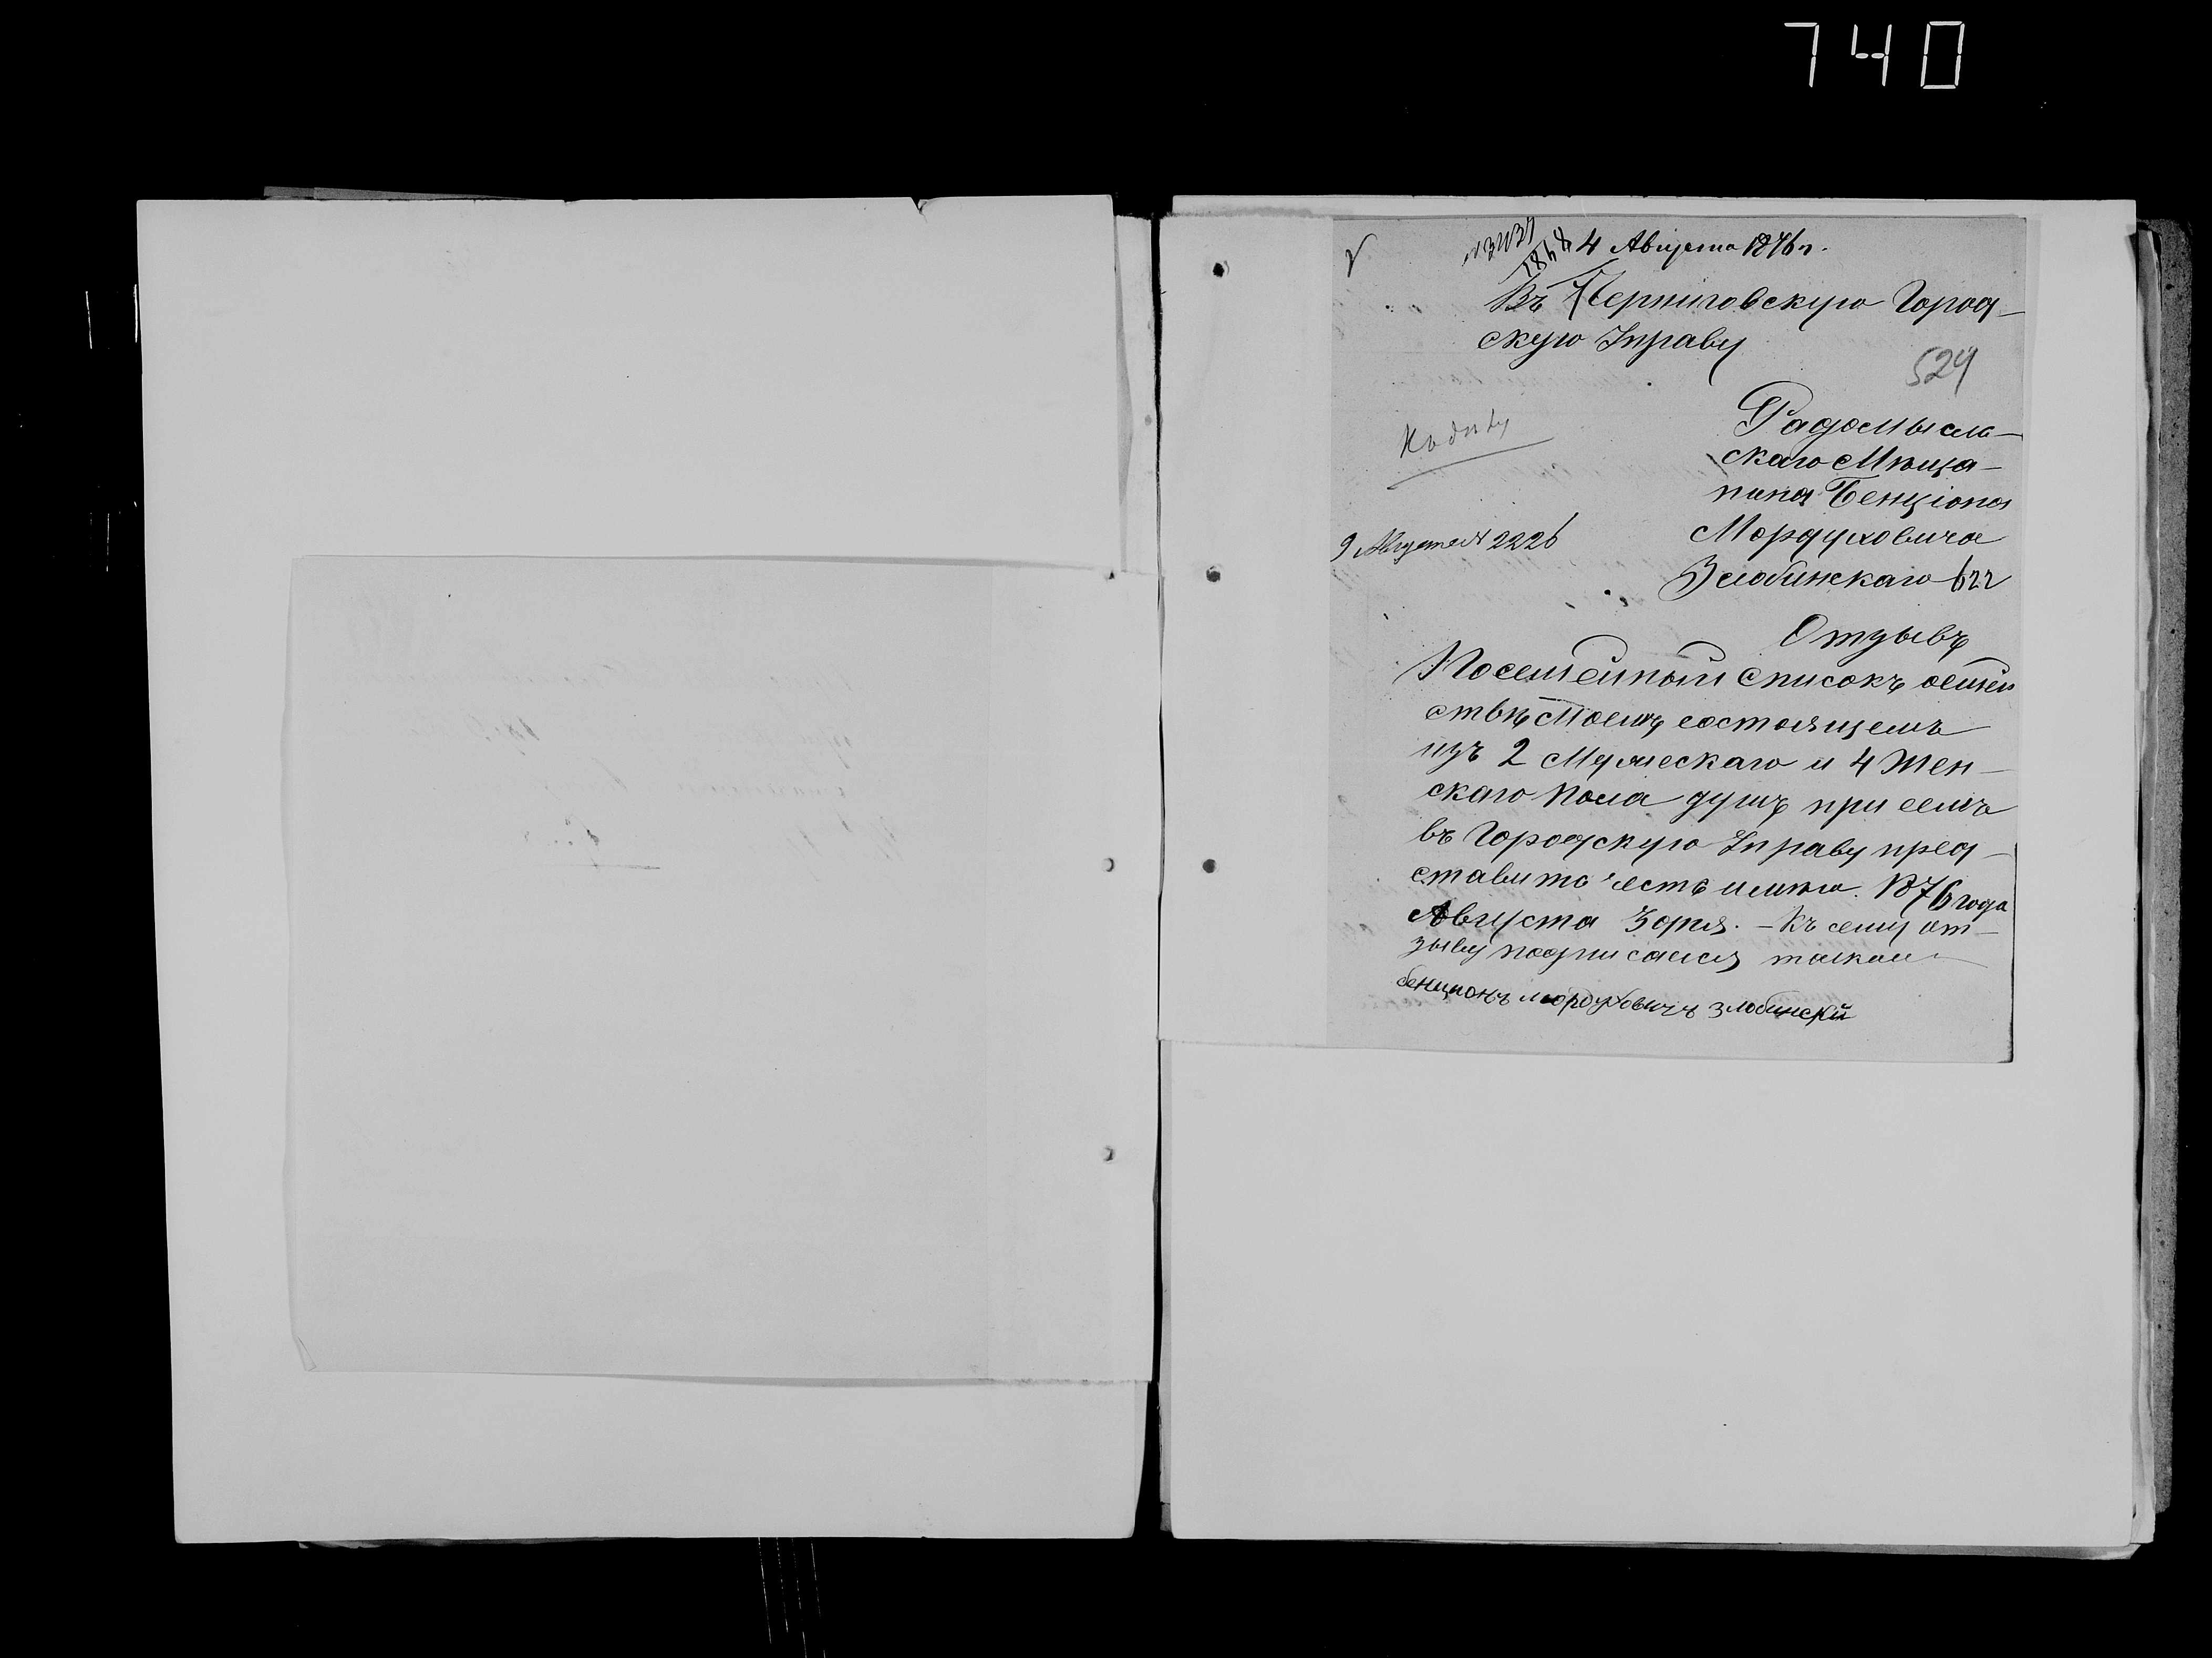 740
4 Августа 1876 г.
Въ Черниговскую Город-
скую Управу
529
Радомысль-
скаго Мѣща-
нина Бенціона
Мордуховича
Злобинскаго 622
9 Августа № 2226
Отзывъ
Посемейный списокъ о семей
ствѣ Моемъ состоящемъ
изъ 2 Мужескаго и 4 Жен-
скаго пола душъ при семъ
въ Городскую Управу пред-
ставить честь имѣю. 1876 года
Августа 3 дня. - Къ сему от-
зыву подписался
бенционъ мордуховичъ злобинскй